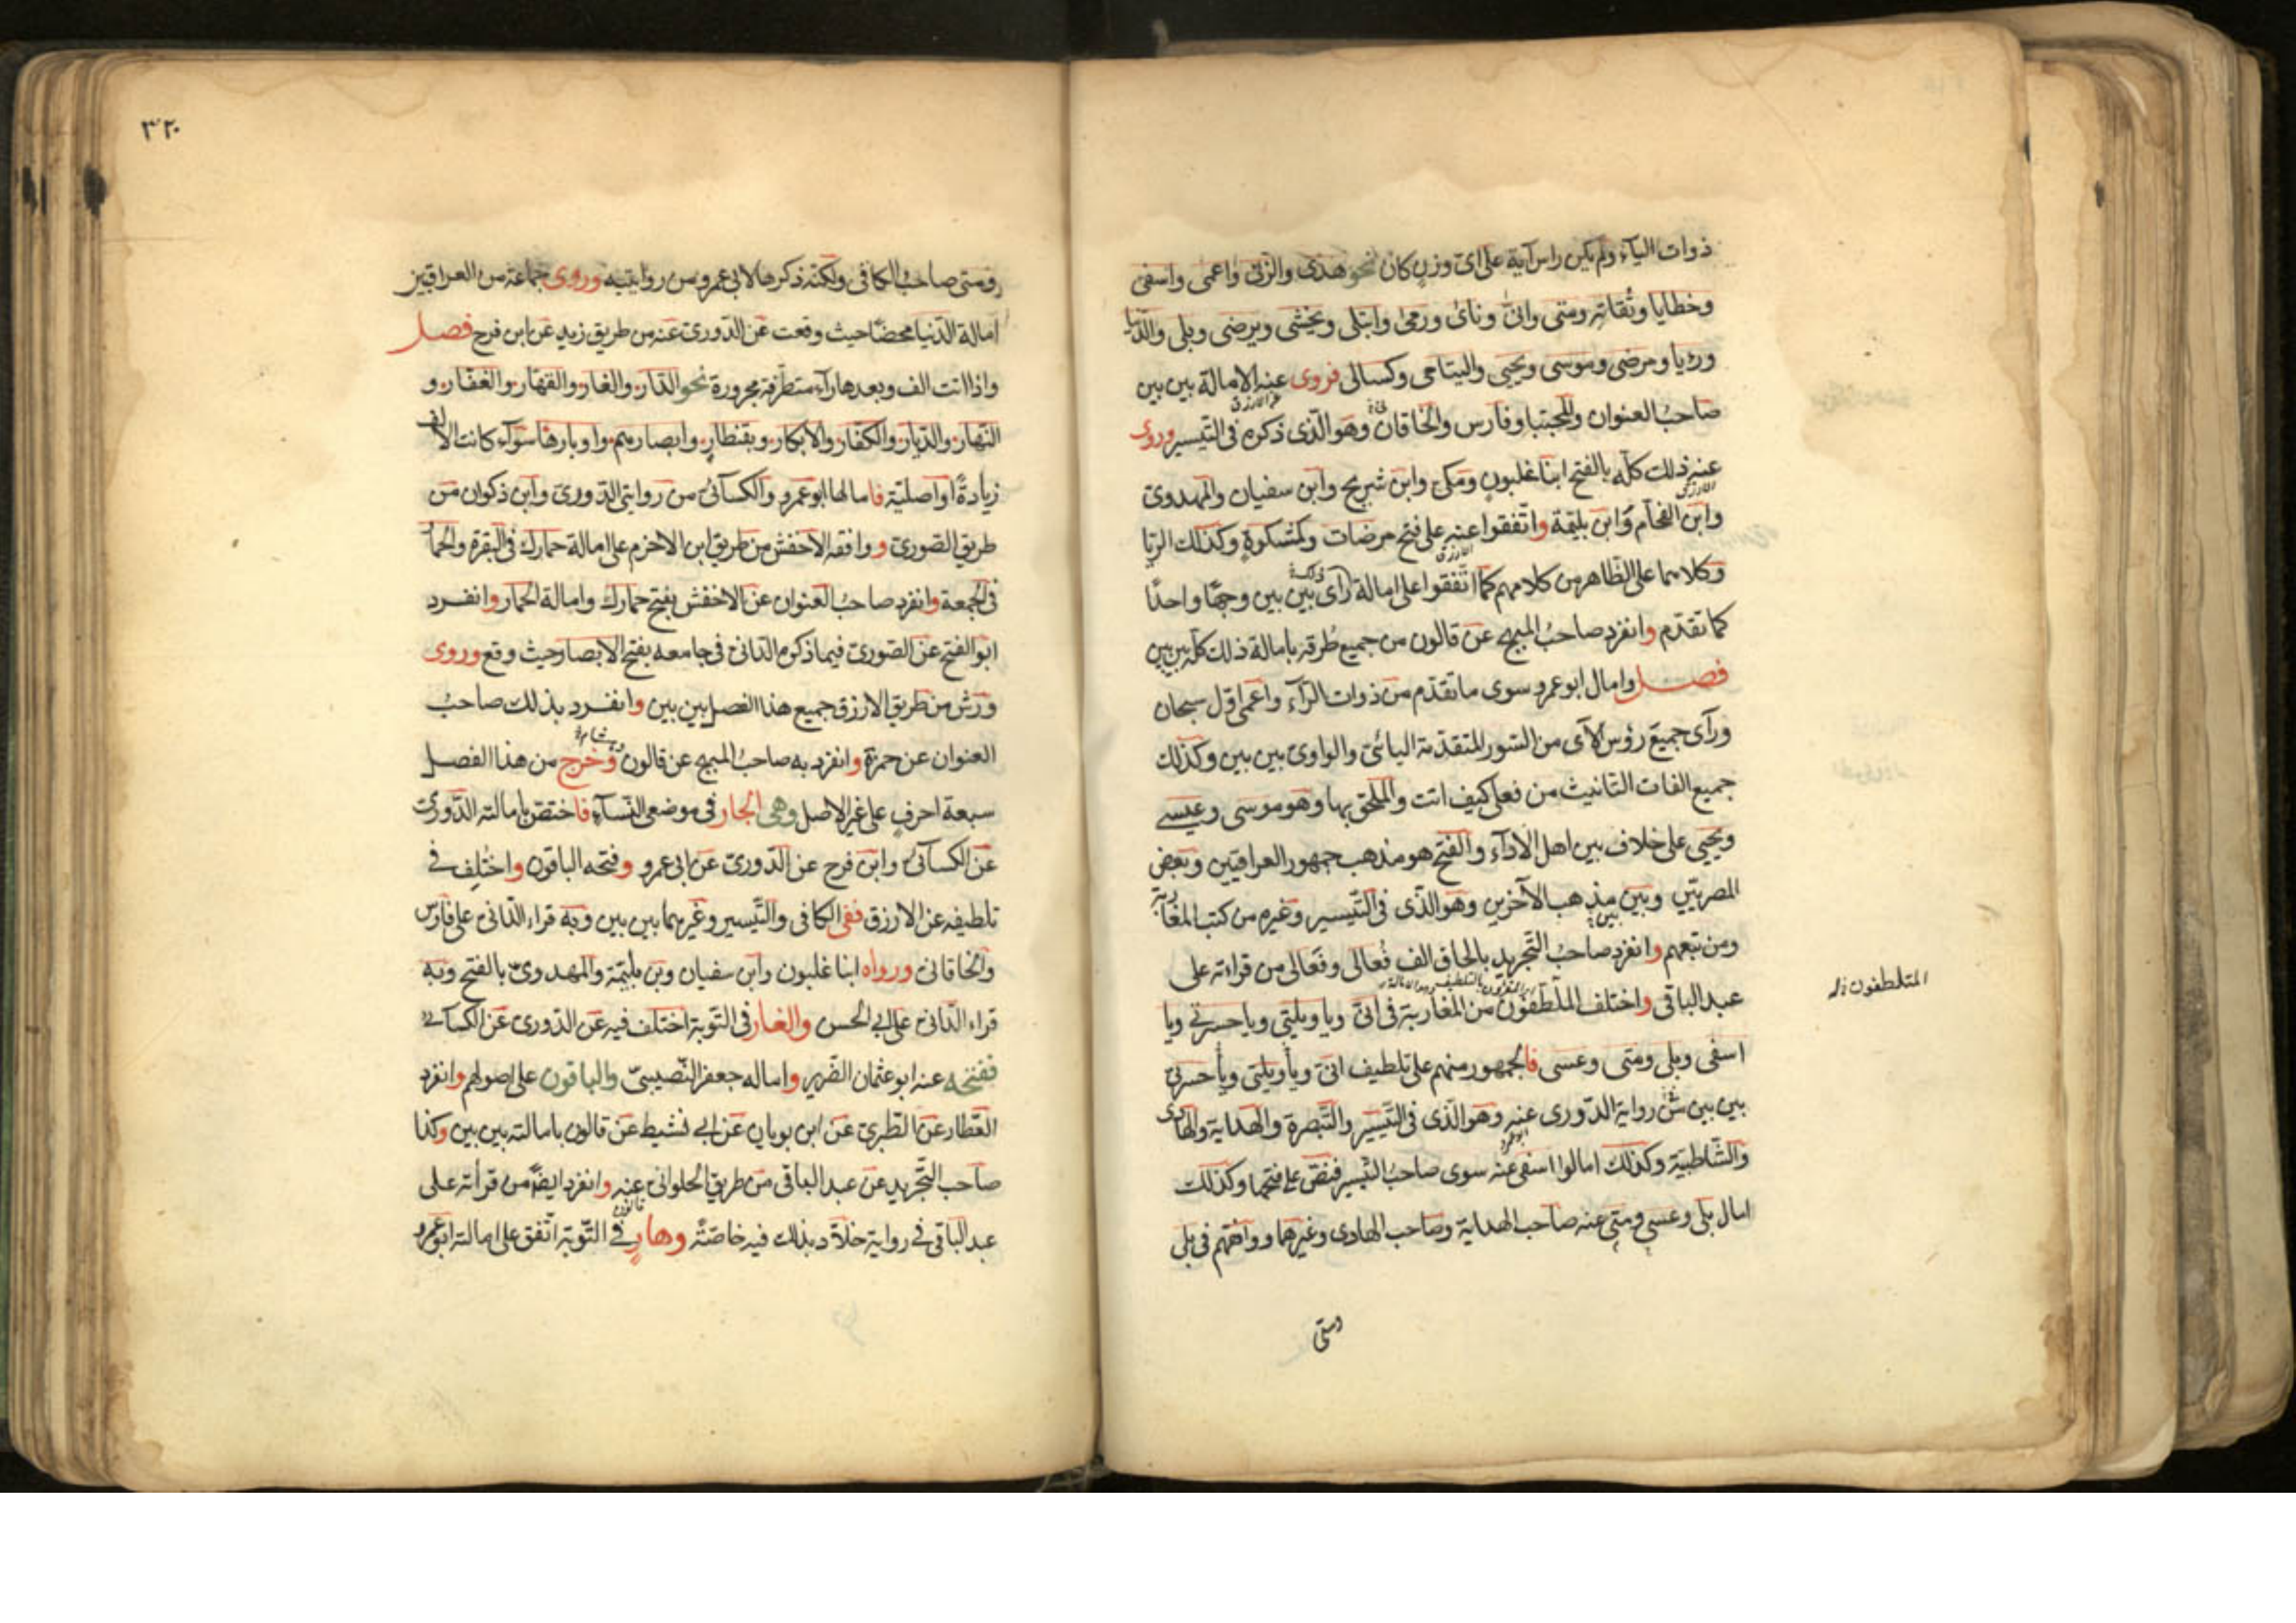 ذوات الياء ولم يكن راس آية على اى وزن كان نحو هدى والزنى واعمى واسفى
وخطايا وتقاته ومتى وانى وناى ورمى وابتلى ويخشى ويرضى وبلى والدنيا
ورؤيا ومرضى وموسى ويحيى واليتامى وكسالى فروى عنه الامالة بين بين
عن الازرق
صاحب العنوان والمجتبا وفارس والخاقانى وهو الذى ذكره فى التيسير وروى
عنه ذلك كله بالفتح ابنا غلبون ومكى وابن شريح وابن سفيان والمهدوى
الازرق
وابن الفحام وابن بليمة واتفقوا عنه على فتح مرضات وكمشكوة وكذلك الربا
الازرق
وكلاهما على الظاهر من كلامهم كما اتفقوا على امالة رأى بين بين وجها واحدا
كما تقدم وانفرد صاحب المبهج عن قالون من جميع طرقه بامالة ذلك كله بين بين
فصل وامال ابو عمرو سوى ما تقدم من ذوات الرآء واعمى اول سبحان
ورآى جميع رؤس الآى من السور المتقدمة اليائى والواوى بين بين وكذلك
جميع الفات التانيث من فعلى كيف اتت والملحق بها وهو موسى وعيسى
ويحيى على خلاف بين اهل الادآء والفتح هو مذهب جمهور العراقيين وبعض
المصريين وبين بين مذهب الآخرين وهو الذى فى التيسير وغيره من كتب المغاربة
ومن تبعهم وانفرد صاحب التجريد بالحاق الف فُعالى وفَعالى من قراءته على
عبد الباقى واختلف الملطفون من المغاربة فى انى ويا ويلتى ويا حسرتى ويا
المتلطفون
اسفى وبلى ومتى وعسى فالجمهور منهم على تلطيف انى ويا ويلتى ويا حسرتى
بين بين من رواية الدورى عنه وهو الذى فى التيسير والتبصرة والهداية والهادى
ابو عمرو
والشاطبية وكذلك امالوا اسفى عنه سوى صاحب التيسير فنص على فتحها وكذلك
امال بلى وعسى ومتى عنه صاحب الهداية وصاحب الهادى وغيرهما ووافقهم فى بلى
ومتى
٣٢٠
ومتى صاحب الكافى ولكنه ذكرها لابى عمرو من روايتيه وروى جماعة من العراقيين
امالة الدنيا محضا حيث وقعت عن الدورى عنه من طريق زيد عن ابن فرح فصل
واذا اتت الف وبعدها رآء متطرفة مجرورة نحو الدار والغار والقهار والغفار و
النهار والديار والكفار والابكار وبقنطار وابصارهم واوبارها سوآء كانت الالف
زيادة او اصلية فامالها ابو عمرو والكسآئى من روايتى الدورى وابن ذكوان من
طريق الصورى ووافقه الاخفش من طريق ابن الاخرم على امالة حمارك فى البقرة والحمار
فى الجمعة وانفرد صاحب العنوان عن الاخفش بفتح حمارك وامالة الحمار وانفرد
ابو الفتح عن الصورى فيما ذكره الدانى فى جامعه بفتح الابصار حيث وقع وروى
ورش من طريق الازرق جميع هذا الفصل بين بين وانفرد بذلك صاحب
العنوان عن حمزة وانفرد به صاحب المبهج عن قالون وخرج من هذا الفصل
سبعة احرف على غير الاصل وهى الجار فى موضعى النسآء فاختص بامالته الدورى
عن الكسآئى وابن فرح عن الدورى عن ابى عمرو وفتحه الباقون واختلف فى
تلطيفه عن الازرق ففى الكافى والتيسير وغيرهما بين بين وبه قراء الدانى على فارس
والخاقانى ورواه ابنا غلبون وابن سفيان وبن بليمة والمهدوى بالفتح وبه
قراء الدانى على ابى الحسن والغار فى التوبة اختلف فيه عن الدورى عن الكسآئى
ففتحه عنه ابو عثمان الضرير واماله جعفر النصيبى والباقون على اصولهم وانفرد
العطار عن الطبرى عن ابن بويان عن ابى نشيط عن قالون بامالته بين بين وكذا
صاحب التجريد عن عبد الباقى من طريق الحلوانى عنه وانفرد ايضا من قرأته على
قالون
عبد الباقى فى رواية خلاد بذلك فيه خاصة وهار فى التوبة اتفق على امالته ابو عمرو